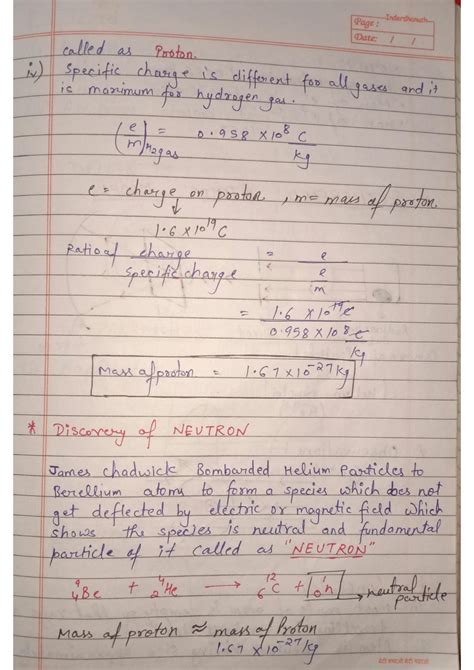 Page:
Date: / /
called as Proton.
iv) Specific charge is different for all gases and it
is maximum for hydrogen gas.
(e/m)H2gas = 0.958 X 10⁸ C/kg
e = charge on proton, m = mass of proton
↓
1.6 X 10¹⁹ C
Ratio of charge / specific charge = e / (e/m)
= 1.6 X 10¹⁹ C / 0.958 X 10⁸ C/kg
Mass of proton = 1.67 X 10⁻²⁷ kg
* Discovery of NEUTRON
James Chadwick Bombarded Helium Particles to
Berellium atoms to form a species which does not
get deflected by electric or magnetic field which
shows the species is neutral and fundamental
particle of it called as "NEUTRON"
⁹₄Be + ⁴₂He → ¹²₆C + ¹₀n → neutral particle
Mass of proton ≈ mass of Proton
1.67 X 10⁻²⁷ kg